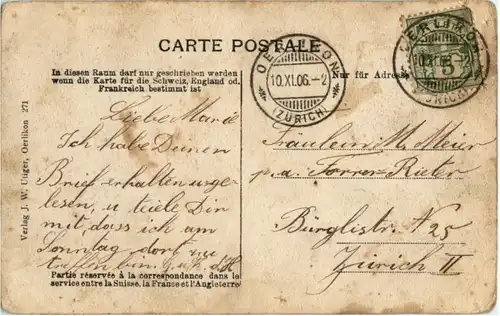 CARTE POSTALE
In diesen Raum darf nur geschrieben werden
wenn die Karte für die Schweiz, England od.
Frankreich bestimmt ist
Nur für Adresse
OERLIKON
10.XI.06.–2
(ZÜRICH)
OERLIKON
10.XI.06.–2
(ZÜRICH)
5
Verlag J. W. Utiger, Oerlikon 271
Liebe Marie
Ich habe Deinen
Brief erhalten u. gele-
sen, u teile Dir
mit, dass ich am
Sonntag dort zu
treffen bin.
Fräulein M. Meier
p.a. Forrer-Rieter
Bürglistr. N 25
Zürich II
Partie réservée à la correspondance dans le
service entre la Suisse, la France et l'Angleterre